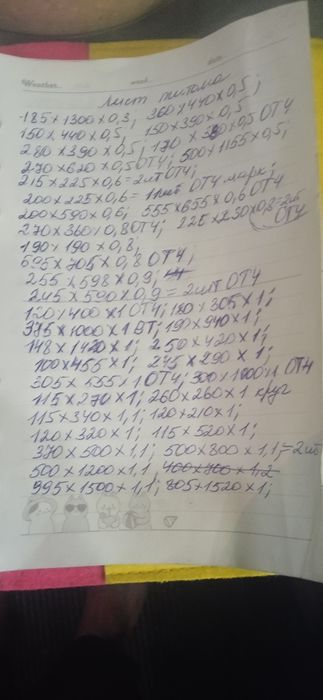 Weather
Лист титана
185×1300×0,3; 360×440×0,5;
150×440×0,5; 150×390×0,5;
280×390×0,5; 170×380×0,5 ОТ4
270×620×0,5 ОТ4; 500×1155×0,5;
215×225×0,6=2шт ОТ4;
200×225×0,6= 11шт ОТ4 марк;
200×590×0,6; 555×655×0,6 ОТ4
270×360×0,8 ОТ4; 225×230×0,8=2шт ОТ4
190×190×0,8;
695×705×0,8 ОТ4;
255×598×0,9;
245×590×0,9=2шт ОТ4
120×400×1 ОТ4; 180×305×1;
375×1000×1 ВТ; 190×940×1;
148×1420×1; 250×420×1;
100×455×1; 245×290×1;
305×555×1 ОТ4; 300×1000×1 ОТ4
115×270×1; 260×260×1 круг
115×340×1,1; 120×210×1;
120×320×1; 115×520×1;
370×500×1,1; 500×800×1,1;=2шт
500×1200×1,1 400×800×1,2
995×1500×1,1; 805×1520×1;